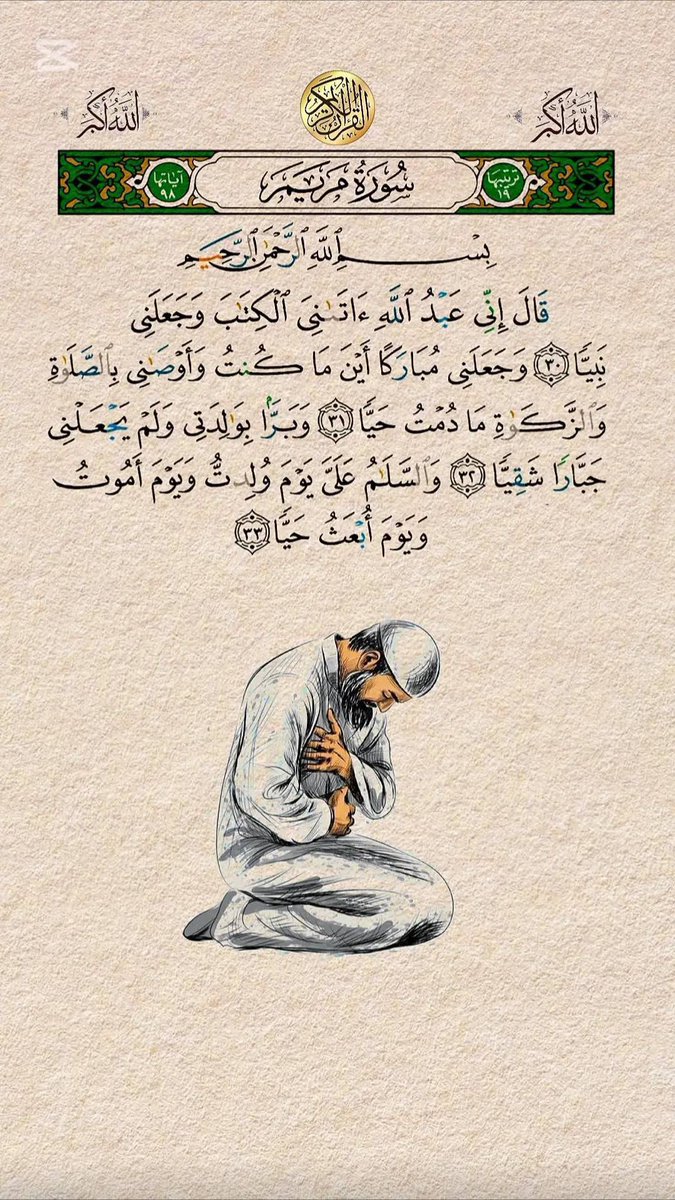 الله أكبر
القرآن الكريم
الله أكبر
ترتيبها ١٩
سُورَةُ مَرْيَمَ
آياتها ٩٨
بِسْمِ ٱللَّهِ ٱلرَّحْمَٰنِ ٱلرَّحِيمِ
قَالَ إِنِّي عَبْدُ ٱللَّهِ ءَاتَىٰنِيَ ٱلْكِتَٰبَ وَجَعَلَنِي
نَبِيًّا ٣٠ وَجَعَلَنِي مُبَارَكًا أَيْنَ مَا كُنتُ وَأَوْصَٰنِي بِٱلصَّلَوٰةِ
وَٱلزَّكَوٰةِ مَا دُمْتُ حَيًّا ٣١ وَبَرًّۢا بِوَٰلِدَتِي وَلَمْ يَجْعَلْنِي
جَبَّارًا شَقِيًّا ٣٢ وَٱلسَّلَٰمُ عَلَيَّ يَوْمَ وُلِدتُّ وَيَوْمَ أَمُوتُ
وَيَوْمَ أُبْعَثُ حَيًّا ٣٣